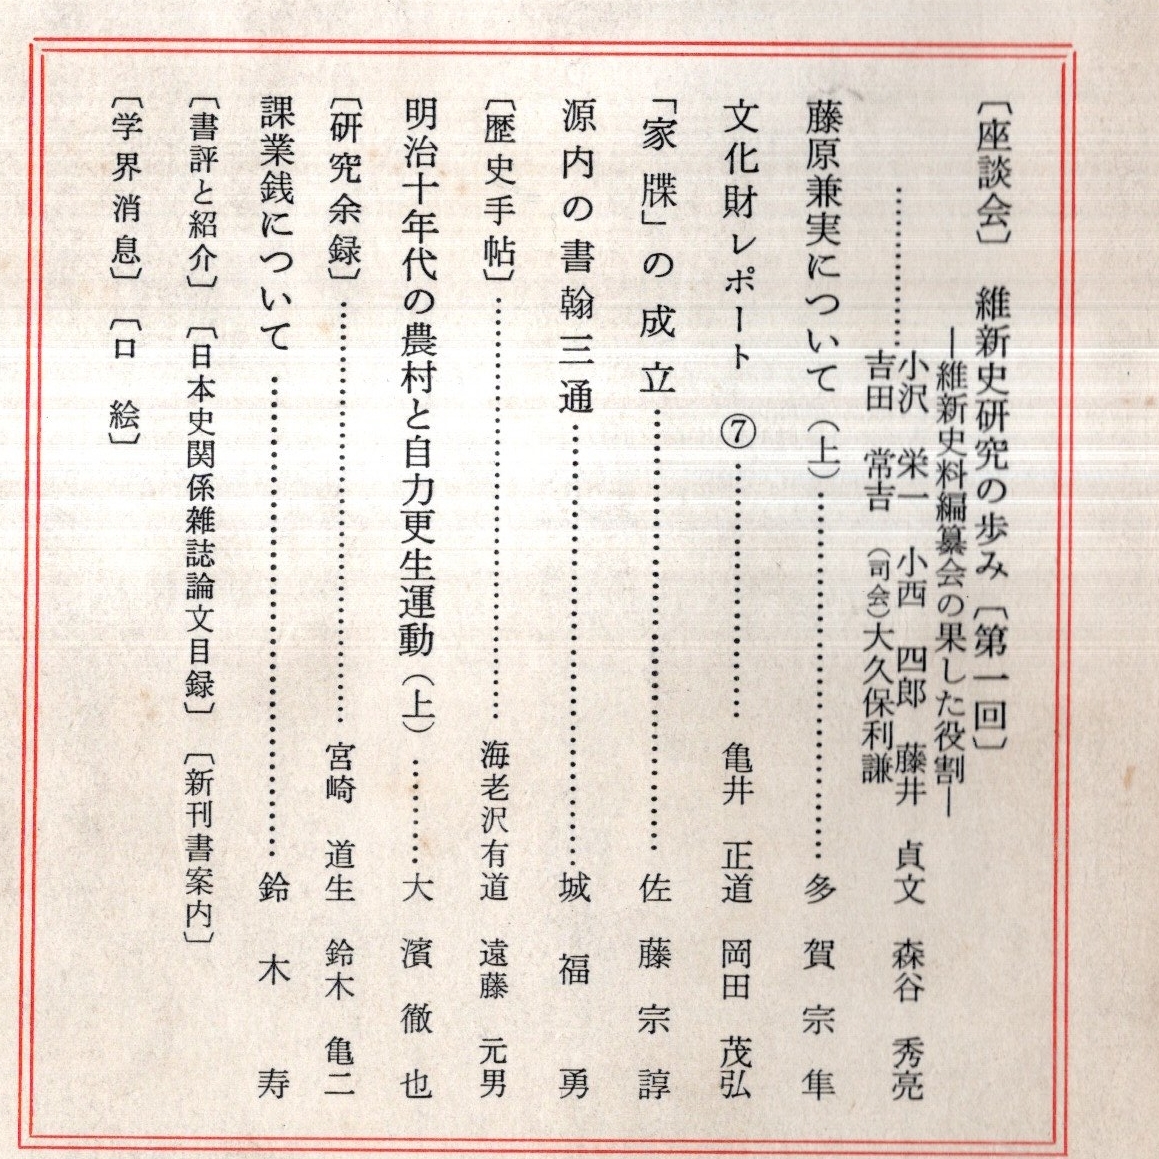 〔座談会〕 維新史研究の歩み〔第一回〕
―維新史料編纂会の果した役割―
…………小沢 栄一 小西 四郎 藤井 貞文 森谷 秀亮
吉田 常吉 (司会)大久保利謙
藤原兼実について(上)…………多賀宗隼
文化財レポート ⑦…………亀井 正道 岡田 茂弘
「家牒」の成立…………佐藤宗諄
源内の書翰三通…………城福勇
〔歴史手帖〕…………海老沢有道 遠藤 元男
明治十年代の農村と自力更生運動(上)…………大濱徹也
〔研究余録〕…………宮崎 道生 鈴木 亀二
課業銭について…………鈴木寿
〔書評と紹介〕〔日本史関係雑誌論文目録〕〔新刊書案内〕
〔学界消息〕〔口 絵〕